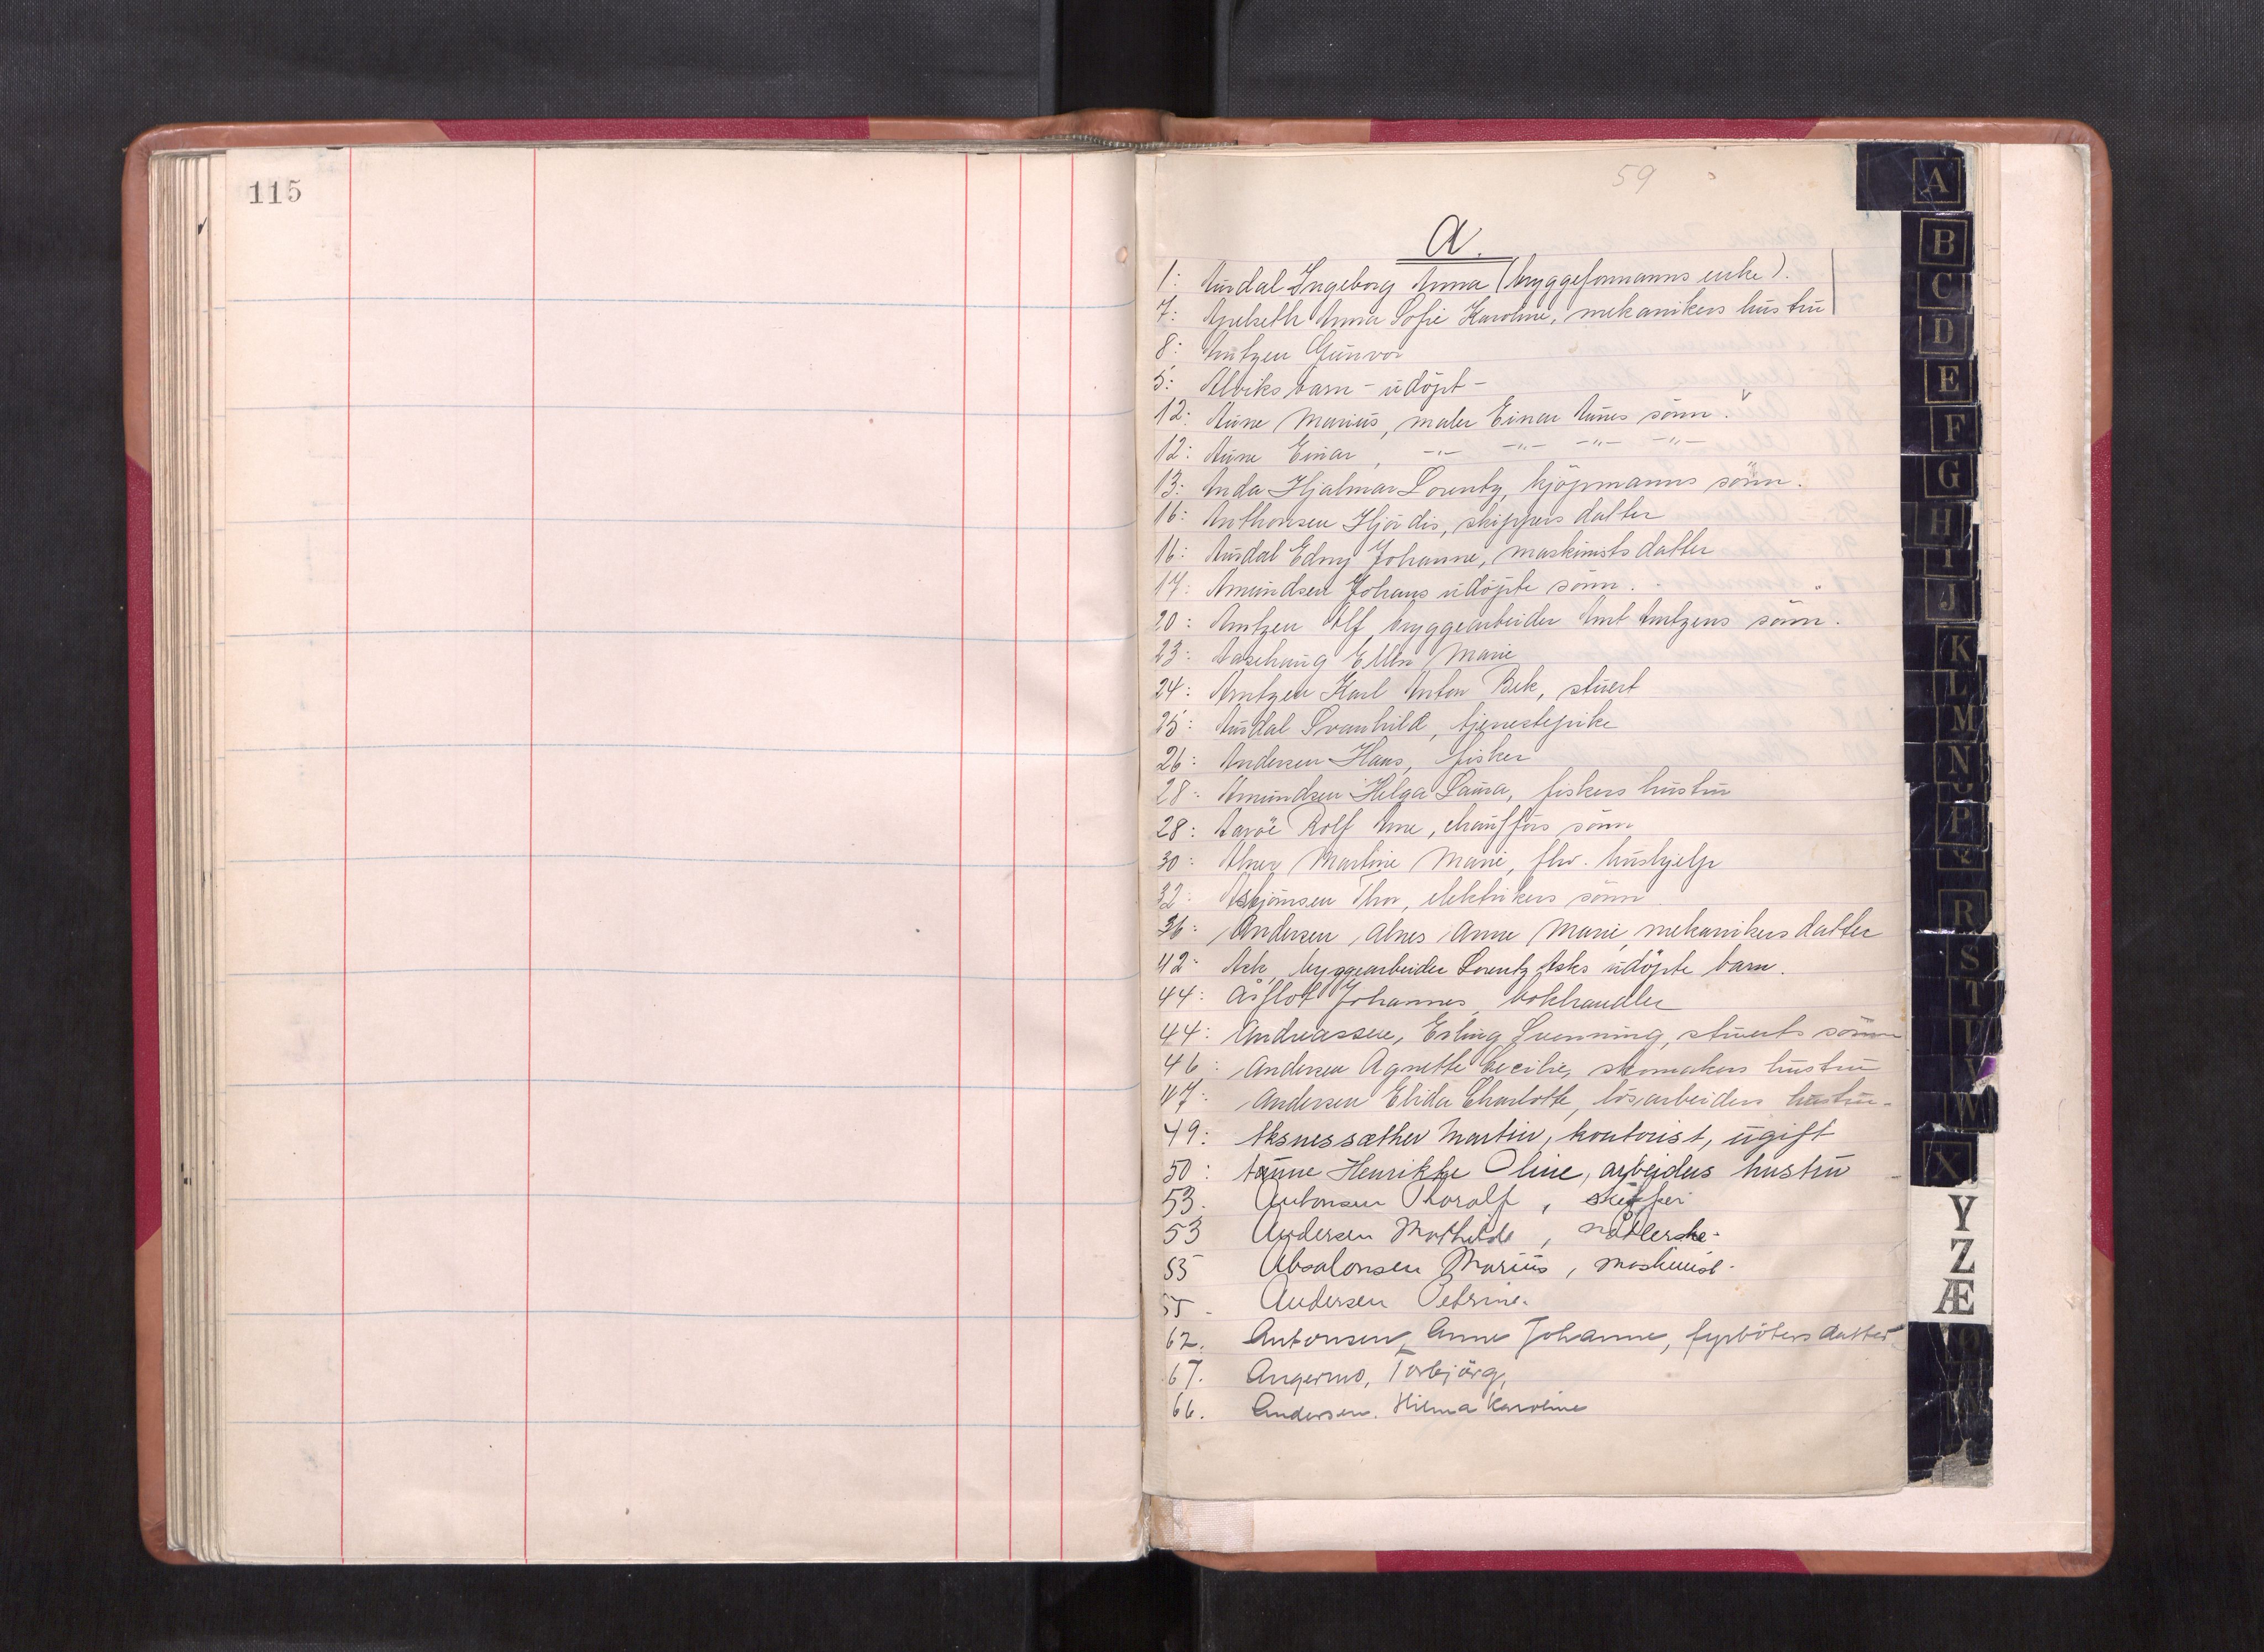 115
59
A.
1: Aurdal Ingeborg Anna (bryggeformanns enke).
7: Apelseth Anna Sofie Karoline, mekanikers hustru
8: Arntzen Gunvor
5: Alviks barn - udöpt -
12: Aune Marius, maler Einar Aunes sönn.
12: Aune Einar, -"- -"- -"-
13: Anda Hjalmar Lorentz, kjöpmanns sönn.
16: Anthonsen Hjördis, skippers datter
16: Aurdal Edny Johanne, maskinists datter
17: Amundsen Johans udöpte sönn.
20: Arntzen Alf, bryggearbeider Arnt Arntzens sönn.
23: Aaschaug Ellen Marie
24: Arntzen Karl Anton Bek, stuert
25: Aurdal Svanhild, tjenestepike
26: Andersen Hans, fisker
28: Amundsen Helga Laura, fiskers hustru
28: Aaröe Rolf Arne, chaufförs sönn
30: Alnes Martine Marie, fhv. hushjelp
32: Asbjörnsen Thor, elektrikers sönn
36: Andersen Alnes Anne Marie mekanikers datter
42: Ask, bryggearbeider Lorentz Asks udöpte barn.
44: Åsflot Johannes, bokhandler
44: Andreassen, Erling Svenning, stuerts sönn
46: Andersen Agnette Cecilie, skomakers hustru
47: Andersen Elida Charlotte, lösarbeiders hustru.
49: Aksnessæther Martin, kontorist, ugift
50: Aaune Henrikke Oline, arbeiders hustru
53. Antonsen Thoralf, skipper
53 Andersen Mathilde, nåtlerske.
55 Absalonsen Marius, maskinist.
55. Andersen Petrine.
62. Antonsen, Anne Johanne, fyrböters datter.
67. Angermo, Torbjörg,
66. Andersen, Hilma Karoline
A
B
C
D
E
F
G
H
I
J
K
L
M
N
P
R
S
T
U
V
W
X
Y
Z
Æ